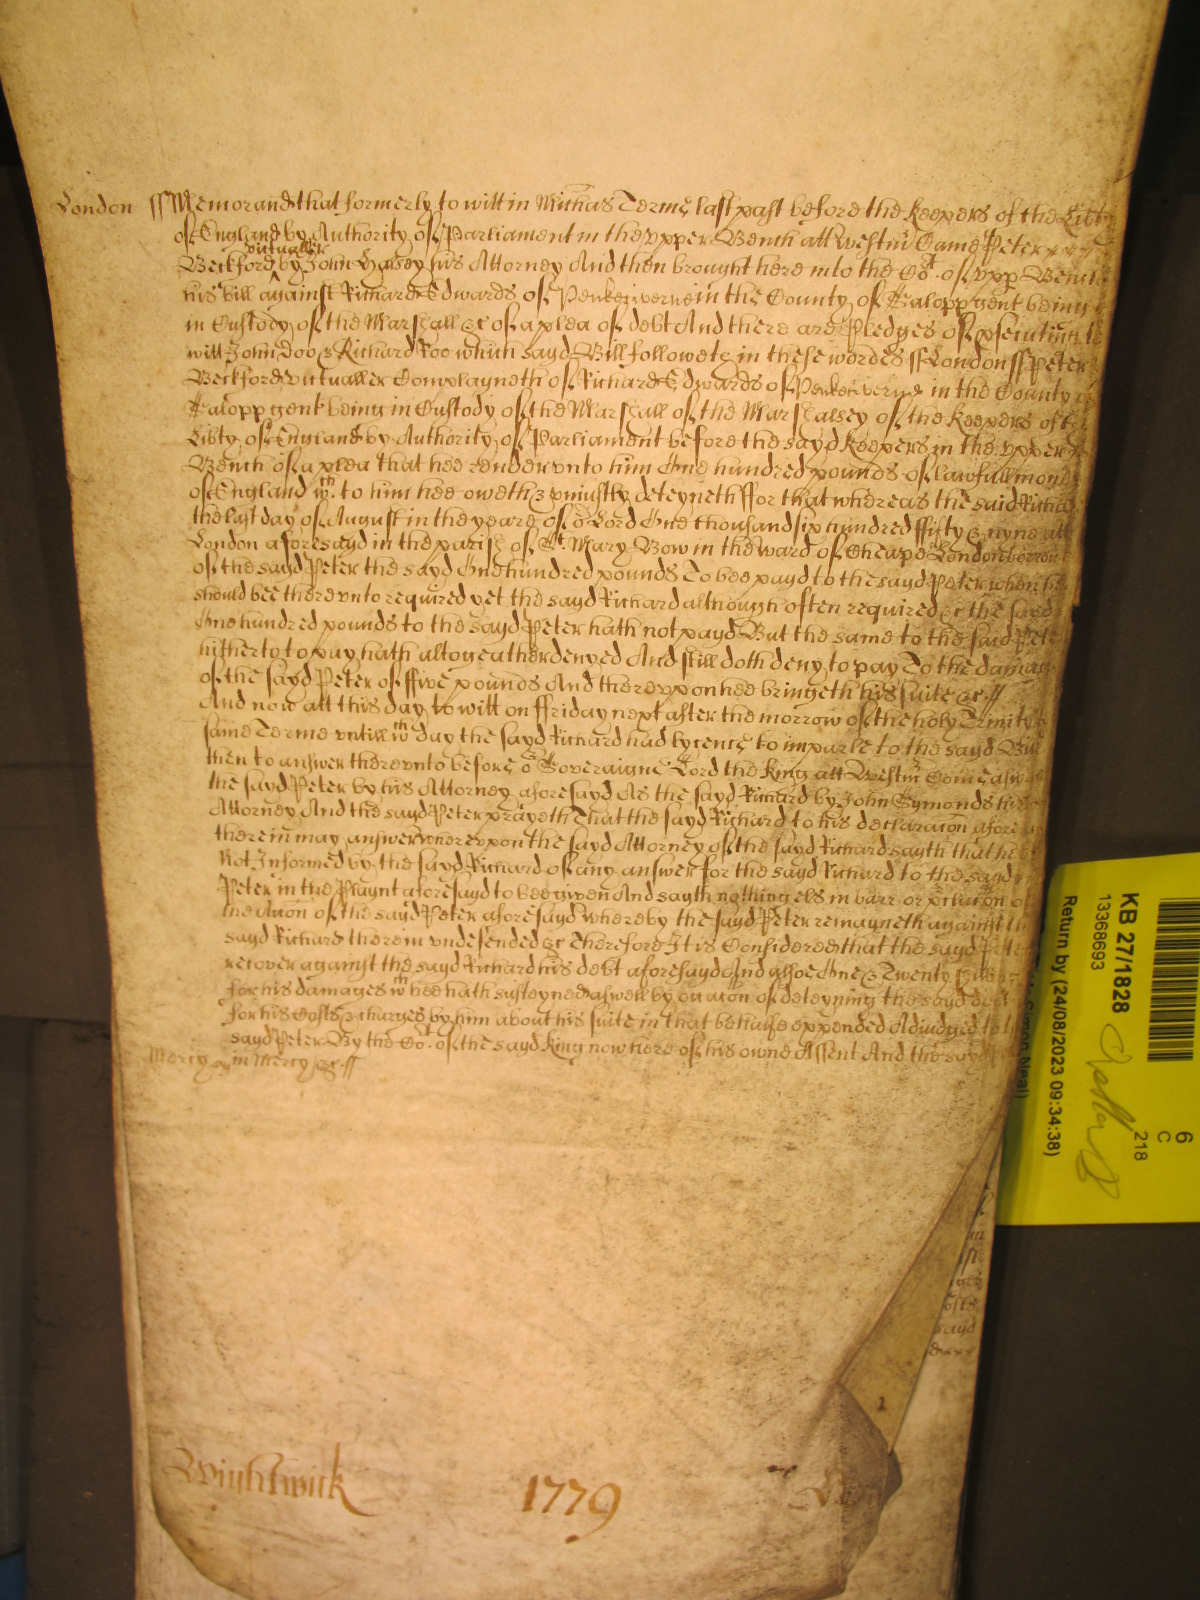 London ss Memorand that formerly to witt in Michas Terme last past before the Keepers of the Libty
of England by Authority of Parliament in the Upper Bench att Westm Came Peter
victualler
Beckford by John Halsey his Attorney And then brought here into the Cot of upp Bench
his bill against Richard Edwards of in the County of Salopp gent being
in Custody of the Marshall &c of a plea of debt And there are Pledges of psecuting to
witt John Doo & Richard Roo which sayd Bill followeth in these wordes ss London ss Peter
Beckford victualler Complayneth of Richard Edwards of in the County of
Salopp gent being in Custody of the Marshall of the Marshalsey of the Keepers of the
Libty of England by Authority of Parliament before the sayd Keepers in the Upper
Bench of a plea that hee render unto him One hundred pounds of lawfull money
of England wth to him hee oweth & uniustly deteyneth ffor that whereas the said Richard
the last day of August in the yeare of or Lord One thousand six hundred ffifty & nyne att
London aforesayd in the parish of St Mary Bow in the ward of Cheape London borrowed
of the sayd Peter the sayd One hundred pounds To bee payd to the sayd Peter when hee
should bee thereunto required yet the sayd Richard although often required &c the sayd
One hundred pounds to the sayd Peter hath not payd But the same to the said Peter
hitherto to pay hath altogeather denyed And still doth deny to pay To the damage
of the sayd Peter of ffive pounds And thereuppon hee bringeth his suite &c ff
And now att this day to witt on ffriday next after the morrow of the holy Trinity
same Terme untill wth day the sayd Richard had lycence to imparle to the sayd Bill
then to answer thereunto before or Soveraigne Lord the King att Westm Come aswell
the sayd Peter by his Attorney aforesayd As the sayd Richard by John Symonds his
Attorney And the sayd Peter prayeth That the sayd Richard to his declaracon afore
therein may answer whereuppon the sayd Attorney of the sayd Richard sayth that he is
not Informed by the sayd Richard of any answer for the sayd Richard to the sayd
Peter in the Playnt aforesayd to bee given And sayth nothing els in barr or of
the Accon of the sayd Peter aforesayd whereby the sayd Peter remayneth against the
sayd Richard therein undefended &c Therefore It is Considered that the sayd Peter
recover against the sayd Richard his debt aforesayd And alsoe One & Twenty
for his damages wth hee hath susteyned aswell by occacon of deteyning the sayd debt
for his Costs & charges by him about his suite in that behalfe expended Adiudged to the
sayd Peter By the Cot of the sayd King now here of his owne Assent And the sayd
Mercy in Mercy &c ff
Wightwick 1779
KB 27/1828
13368693
Return by (24/08/2023 09:34:38)
Simon Neal)
6
C
218